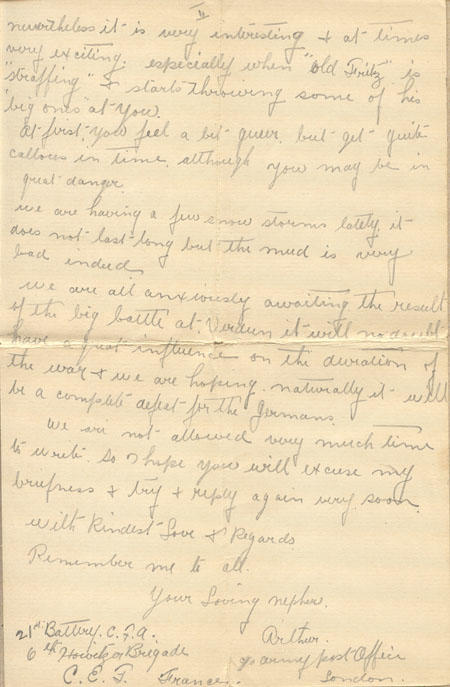 II
nevertheless it is very interesting & at times
very exciting. especially when "old Fritz" is
"straffing" & starts throwing some of his
"big ones" at you.
At first you feel a bit queer. but get quite
callous in time. although you may be in
great danger.
We are having a few snow storms lately it
does not last long but the mud is very
bad indeed.
We are all anxiously awaiting the result
of the big battle at Verdun it will no doubt
have a great influence on the duration of
the war & we are hoping. naturally it will
be a complete defeat for the Germans.
We are not allowed very much time
to write. so I hope you will excuse my
briefness & try & reply again very soon.
with Kindest Love & Regards
Remember me to all.
Your Loving nephew.
Arthur.
21st Battery. C.F.A.
6th Howitzer Brigade
C. E. F. France.
c/o army post Office
London.